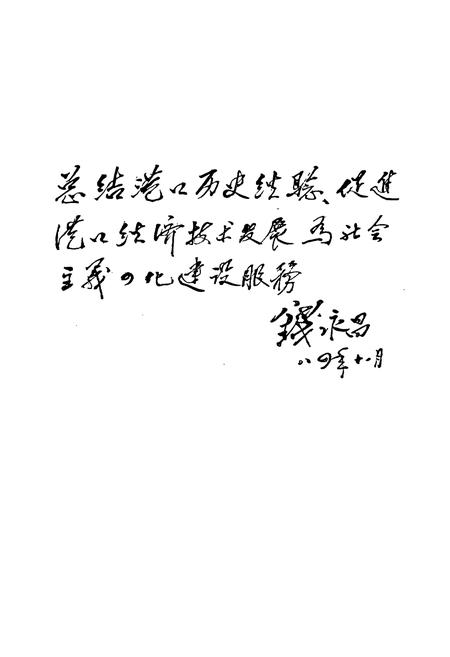 总结港口历史经驗、促進
港口经济技术发展为社会
主義四化建设服務
錢永昌
八四年十月